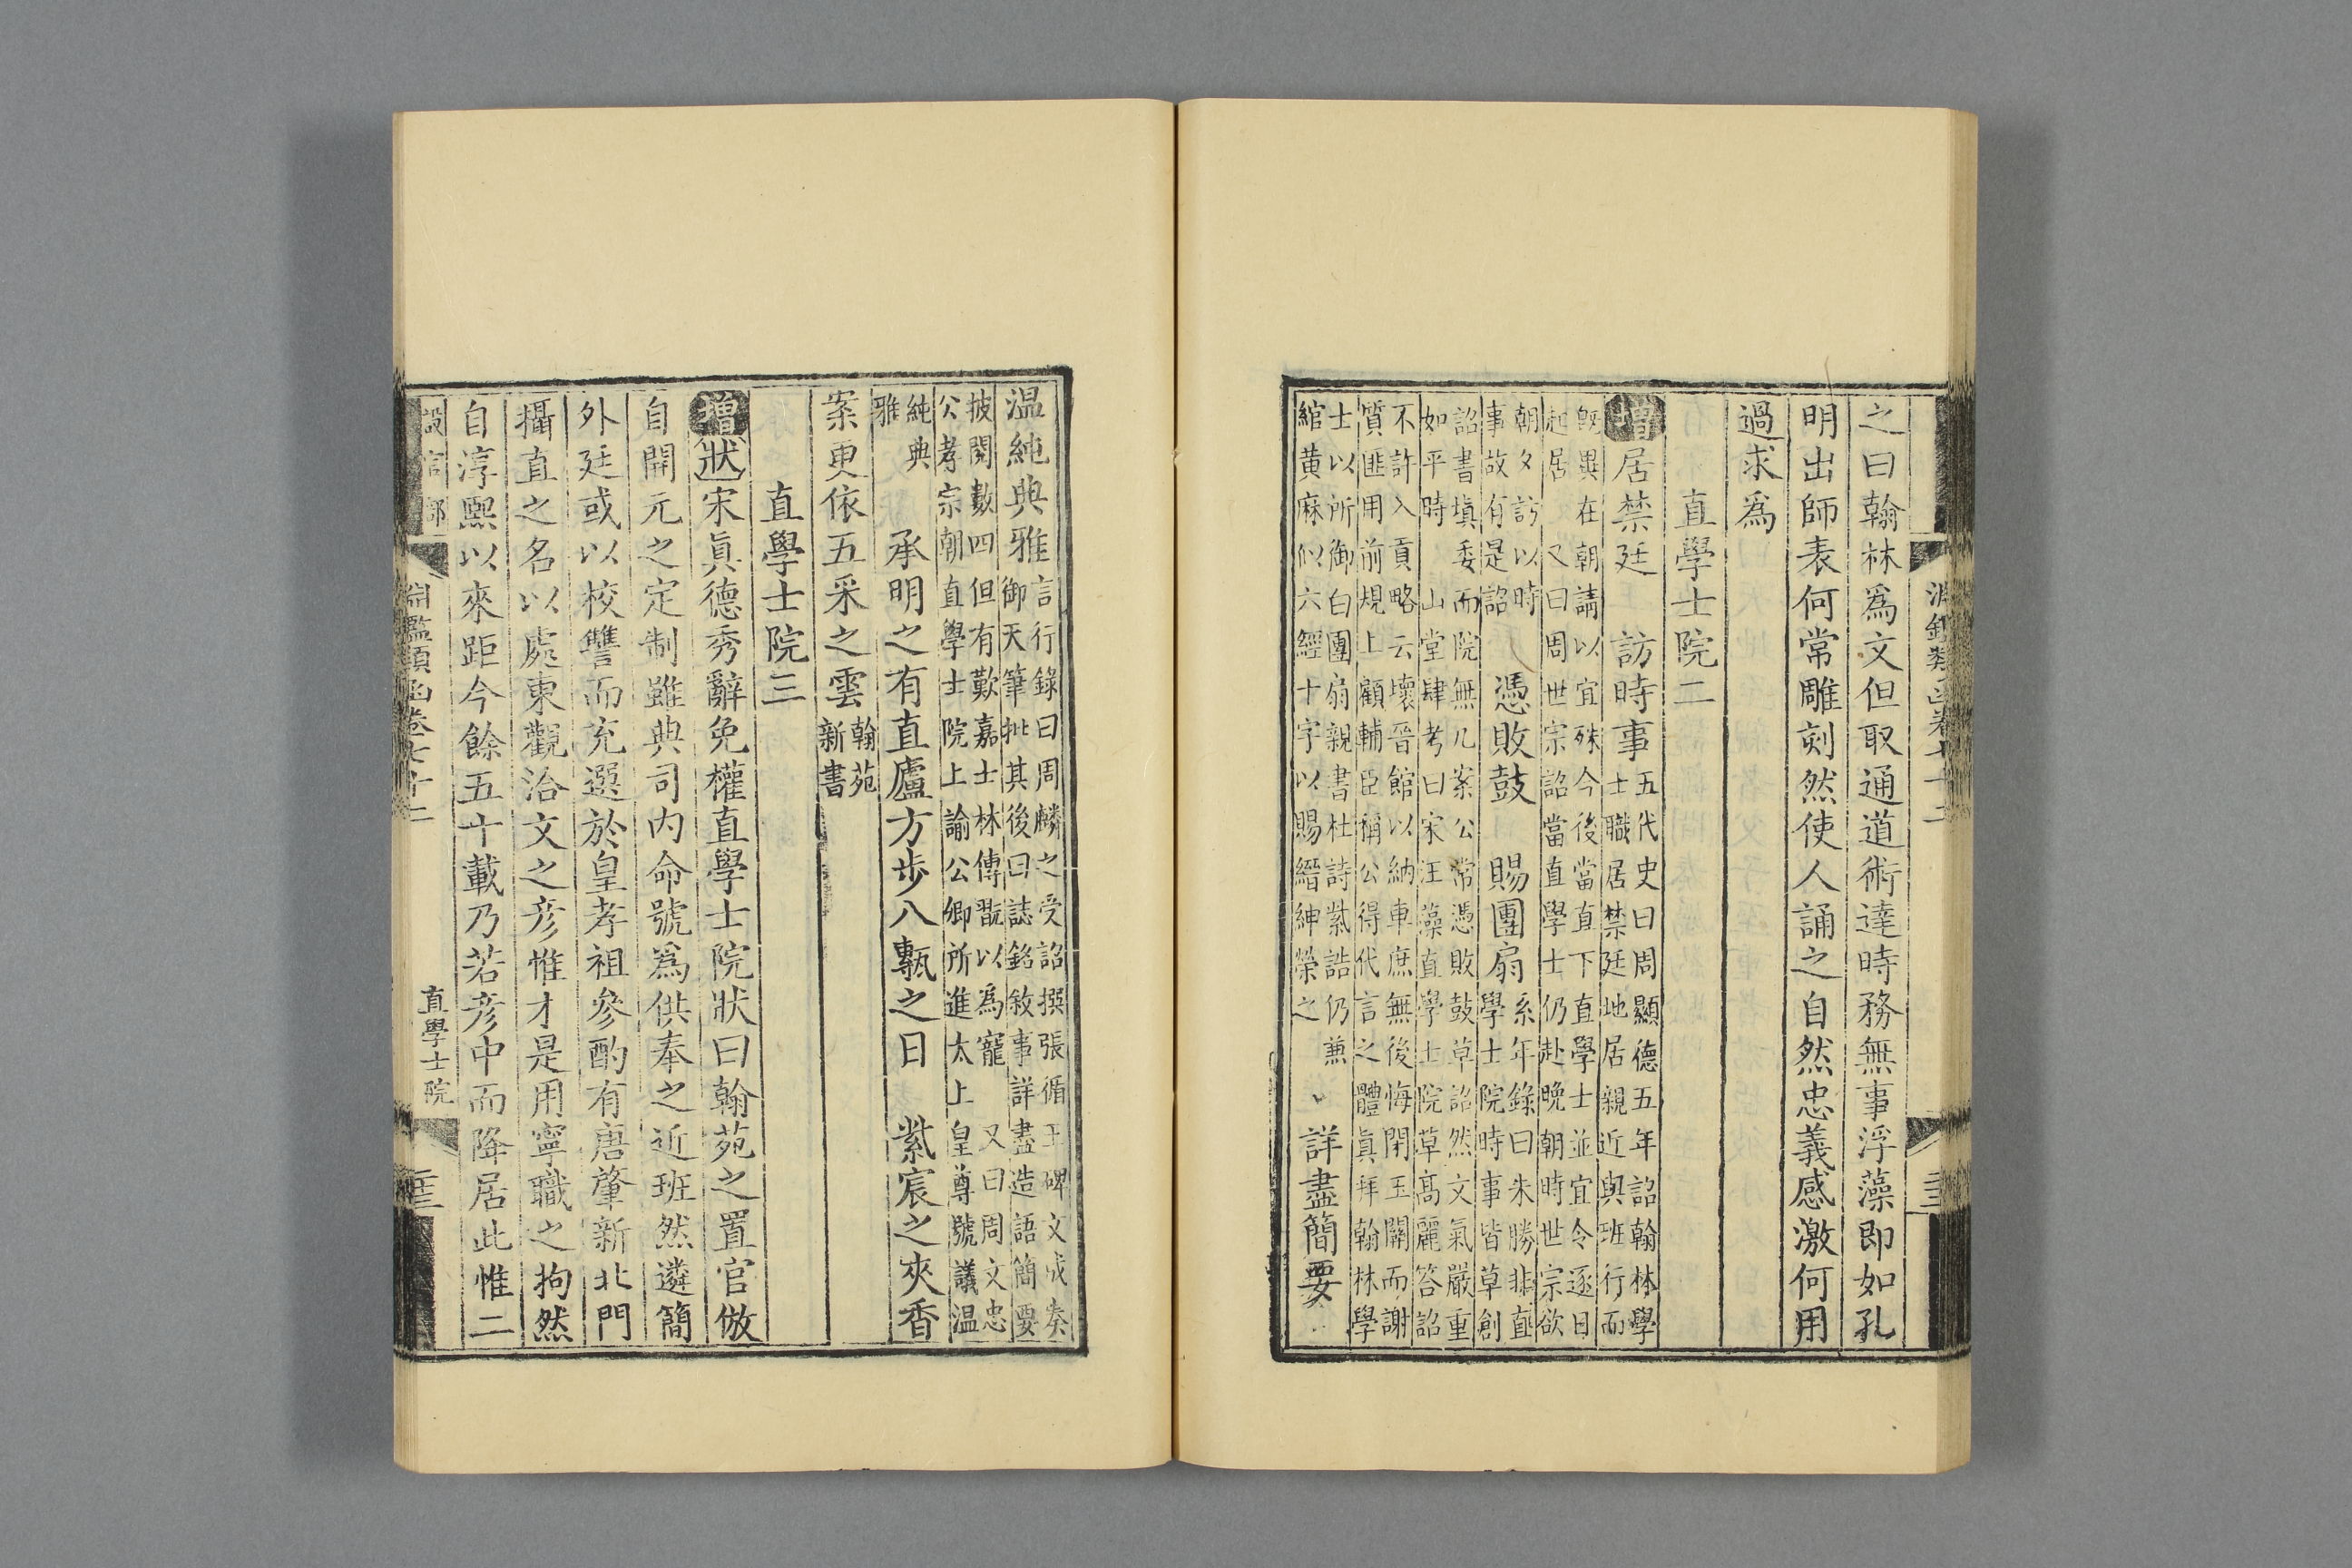 淵鑑類函卷七十二
之曰翰林爲文但取通道術達時務無事浮藻即如孔
明出師表何常雕刻然使人誦之自然忠義感激何用
過求爲
直學士院二
增居禁廷 訪時事 五代史曰周顯德五年詔翰林學
士職居禁廷地居親近與班行而
旣異在朝請以宜殊今後當直下直學士並宜令逐日
起居 又曰周世宗詔當直學士仍赴晚朝時世宗欲
朝夕訪以時
事故有是詔 憑敗鼓 賜團扇 系年錄曰朱勝非直
學士院時事皆草創
詔書填委而院無几案公常憑敗鼓草詔然文氣嚴重
如平時 山堂肆考曰宋汪藻直學士院草高麗答詔
不許入貢略云壞晉館以納車庶無後悔閉玉關而謝
質匪用前規上顧輔臣稱公得代言之體眞拜翰林學
士以所御白團扇親書杜詩紫誥仍兼
綰黄麻似六經十字以賜縉紳榮之 詳盡簡要
温純典雅 言行錄曰周麟之受詔撰張循王碑文成奏
御天筆批其後曰誌銘敘事詳盡造語簡要
披閱數四但有歎嘉士林傳翫以爲寵 又曰周文忠
公孝宗朝直學士院上諭公卿所進太上皇尊號議温
純典
雅 承明之有直廬方步八甎之日 紫宸之夾香
案更依五采之雲 翰苑
新書
直學士院三
增狀宋眞德秀辭免權直學士院狀曰翰苑之置官倣
自開元之定制雖典司内命號爲供奉之近班然遴簡
外廷或以校讐而充選於皇孝祖參酌有唐肇新北門
攝直之名以處東觀洽文之彦惟才是用寧職之拘然
自淳熙以來距今餘五十載乃若彦中而降居此惟二
設官部 淵鑑類函卷七十二 直學士院